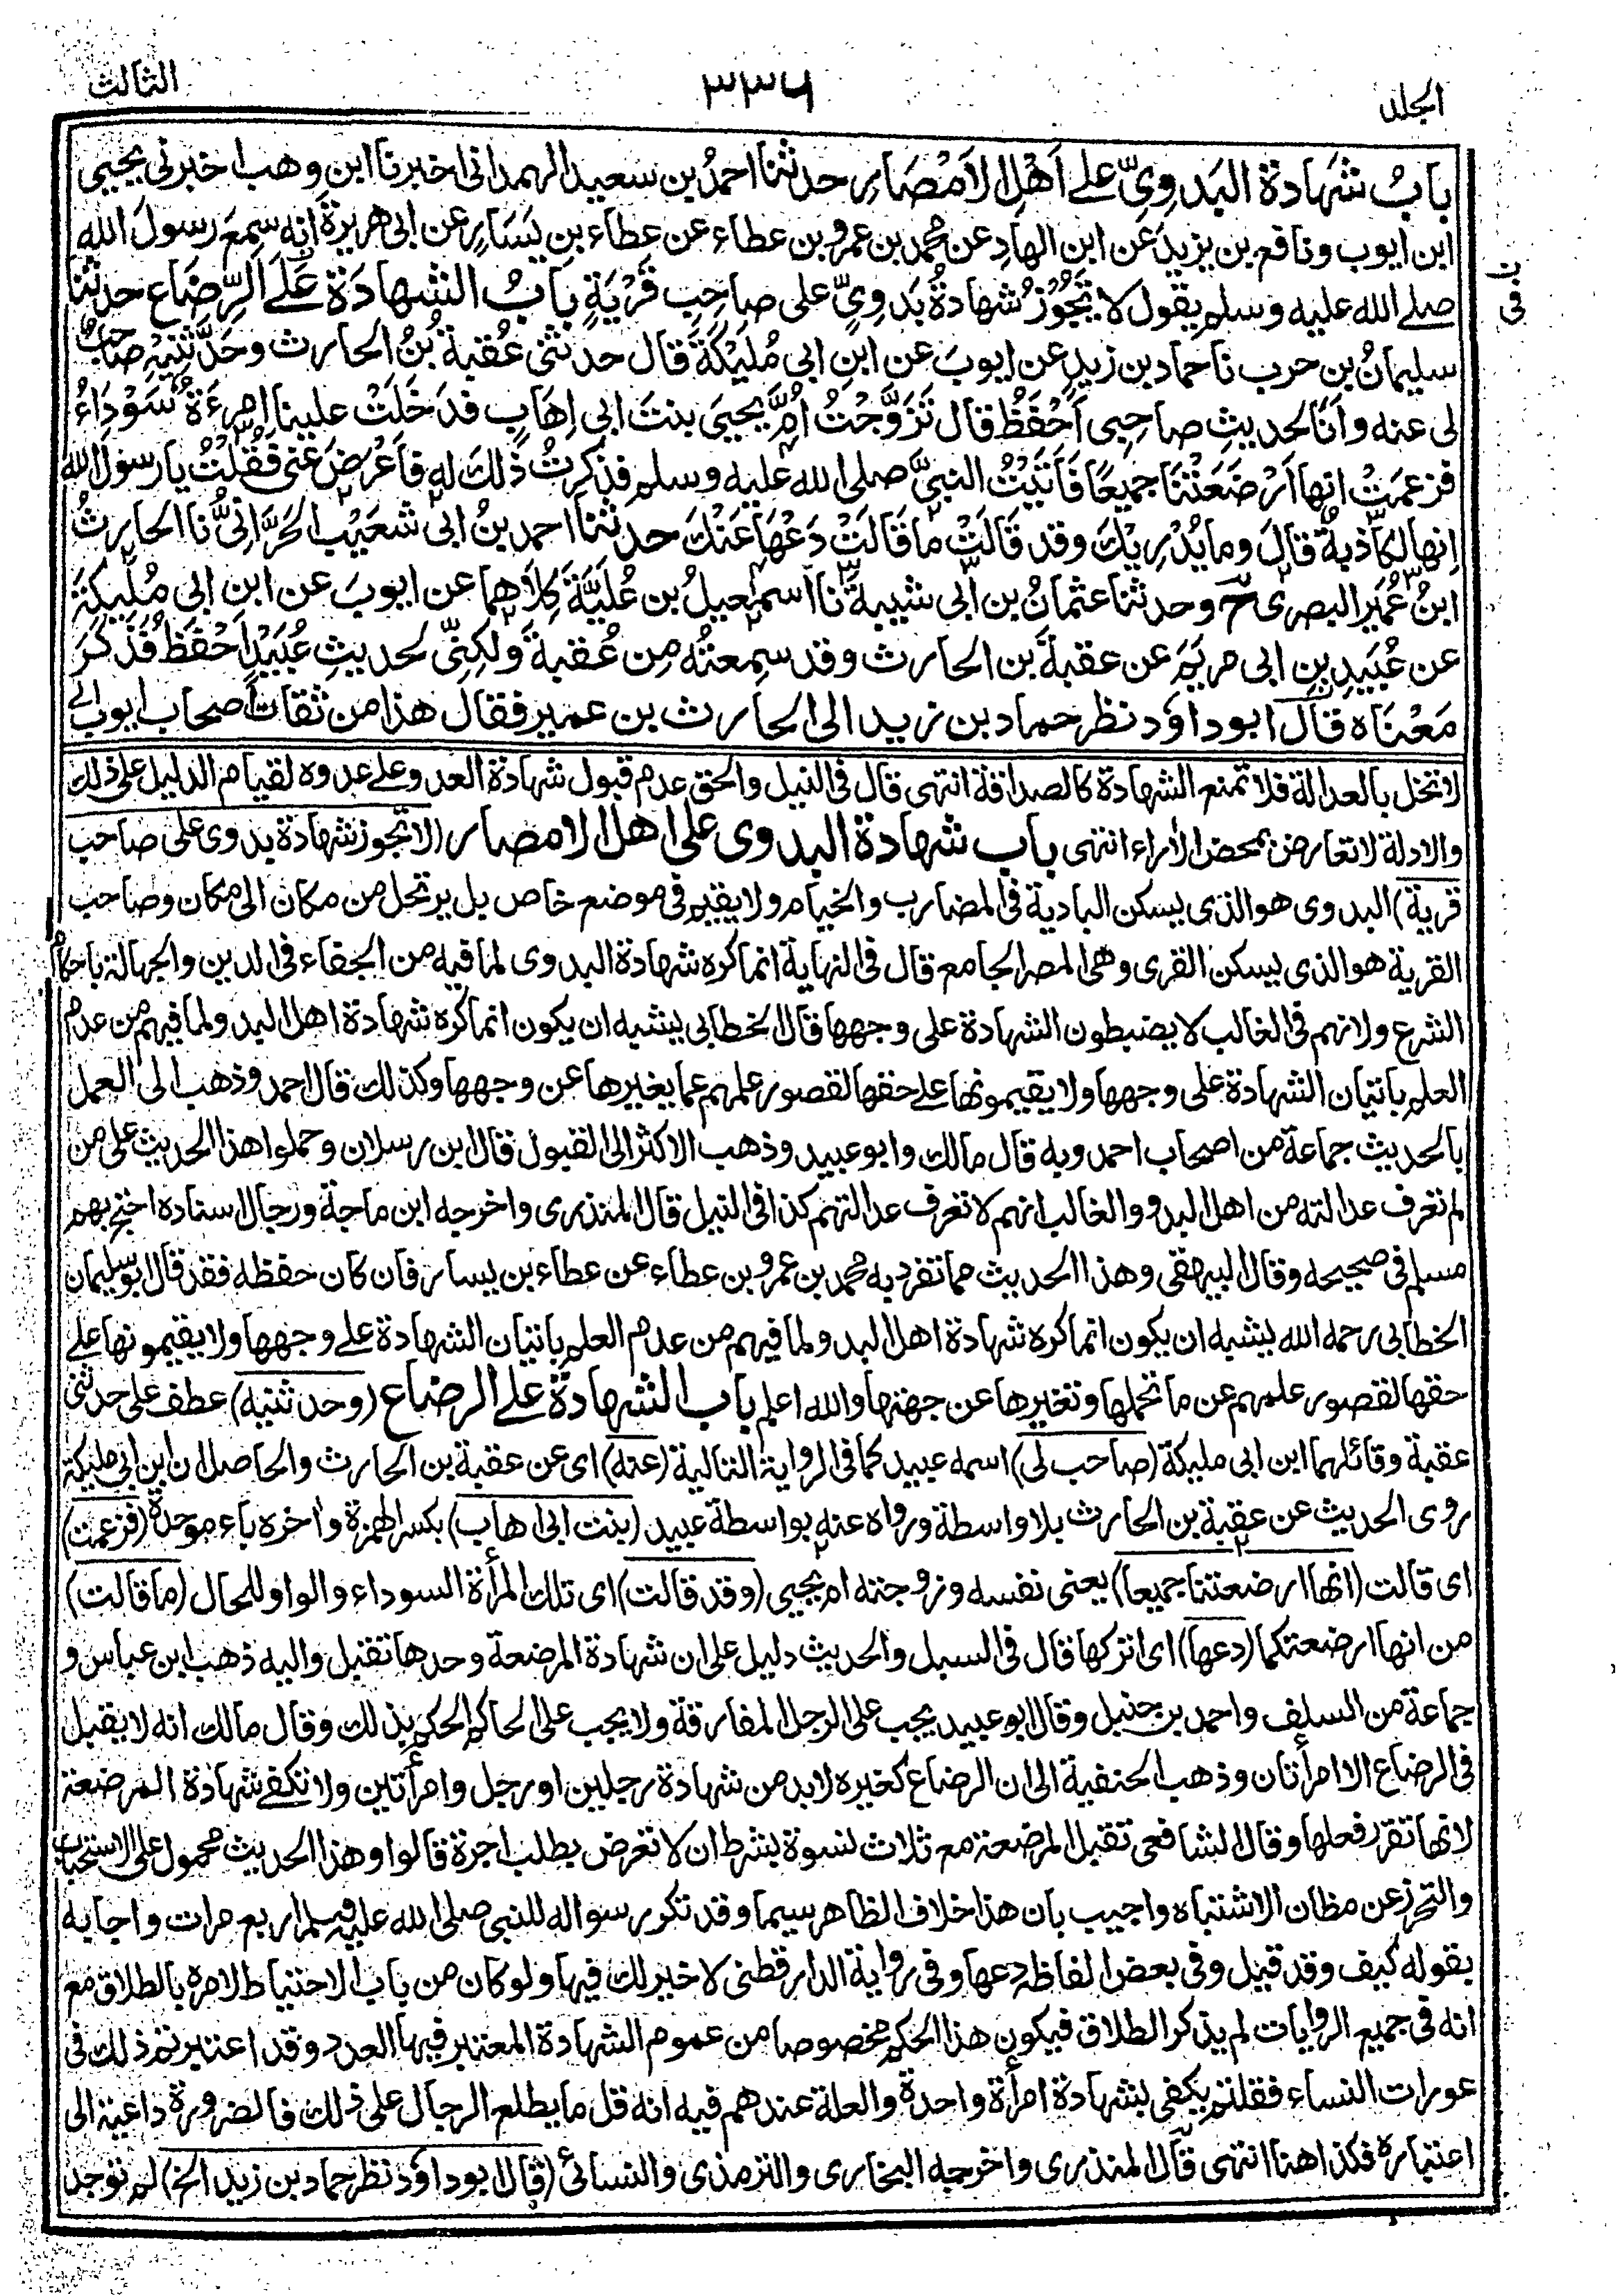 الجلد ٣٣٦ الثالث
بابُ شهادة البَدوِىِّ على اَهْلِ الاَمْصَارِ حدثنا احمدُ بن سعيد الهمدانى اخبرنا ابن وهب اخبرنى يحيى
ابن ايوب ونافع بن يزيدَ عن ابن الهادِ عن محمد بن عمرو بن عطاء عن عطاء بن يَسَارٍ عن ابى هريرةَ انه سمِعَ رسولَ الله
صلے الله عليه وسلم يقول لا تَجُوْزُ شهادةُ بَدوِىٍّ على صاحِبِ قَرْيَةٍ بَابُ الشهادَة عَلَے الرِّضَاع حدثنا
فى
سليمانُ بن حرب نا حماد بن زيدٍ عن ايوبَ عن ابنِ ابى مُلَيْكَةَ قال حدثنى عُقبةُ بنُ الحارث وحَدَّثَنِيْهِ صَاحبٌ
لى عنه وانَا لحديثِ صاحِبى اَحْفَظُ قال تَزَوَّجْتُ اُمَّ يحيىَ بنتَ ابى اِهَابٍ فدَخَلَتْ علينا اِمرءَةٌ سَوْدَاءُ
فزعمَتْ انها اَرْضَعَتْنَا جميعًا فَاَتَيْتُ النبىَّ صلى الله عليه وسلم فذكرتُ ذٰلك له فاَعْرَضَ عنى فقُلْتُ يا رسولَ الله
اِنها لكاذبةٌ قالَ وما يُدْرِيْكَ وقد قَالَتْ ما قَالَتْ دَعْهَا عَنْكَ حدثنا احمد بنُ ابى شعَيْبٍ الحَرَّانِىُّ نا الحارثُ
ابنُ عُمَيرٍ البصرى ح وحدثنا عثمانُ بن ابى شيبةَ نا اسمٰعيلُ بن عُلَيَّةَ كِلاَهما عن ايوبَ عن ابن ابى مُلَيكةَ
عن عُبَيدِ بنِ ابى مريَمَ عن عقبةَ بن الحارث وقد سمِعتُه مِن عُقبةَ ولكِنِّى لحديثِ عُبَيْدٍ اَحْفَظُ فَذَكرَ
مَعْنَاه قال ابو داؤد نظر حماد بن زيد الى الحارث بن عمير فقال هذا من ثقات اصحاب ايوب
لا تخل بالعدالة فلا تمنع الشهادة كالصداقة انتهى قال فى النيل والحق عدم قبول شهادة العدو على عدوه لقيام الدليل على ذلك
والادلة لا تعارض بمحض الأراء انتهى باب شهادة البدوى على اهل الامصار (لا تجوز شهادة بدوى على صاحب
قرية) البدوى هو الذى يسكن البادية فى المضارب والخيام ولا يقيم فى موضع خاص بل يرتحل من مكان الى مكان وصاحب
القرية هو الذى يسكن القرى وهى المصر الجامع قال فى النهاية انما كره شهادة البدوى لما فيه من الجفاء فى الدين والجهالة باحكام
الشرع ولانهم فى الغالب لا يضبطون الشهادة على وجهها قال الخطابى يشبه ان يكون انما كره شهادة اهل البدو لما فيهم من عدم
العلم باتيان الشهادة على وجهها ولا يقيمونها على حقها لقصور علمهم عما يغيرها عن وجهها وكذلك قال احمد وذهب الى العمل
بالحديث جماعة من اصحاب احمد وبه قال مالك وابو عبيد وذهب الاكثر الى القبول قال ابن رسلان وحملوا هذا الحديث على من
لم تعرف عدالته من اهل البدو والغالب انهم لا تعرف عدالتهم كذا فى النيل قال المنذرى واخرجه ابن ماجة ورجال اسناده احتج بهم
مسلم فى صحيحه وقال البيهقى وهذا الحديث مما تفرد به محمد بن عمرو بن عطاء عن عطاء بن يسار فان كان حفظه فقد قال ابو سليمان
الخطابى رحمه الله يشبه ان يكون انما كره شهادة اهل البدو لما فيهم من عدم العلم باتيان الشهادة على وجهها ولا يقيمونها على
حقها لقصور علمهم عن ما تحملها وتغيرها عن جهتها والله اعلم باب الشهادة على الرضاع (وحدثنيه) عطف على حدثنى
عقبة وقائلهما ابن ابى مليكة (صاحب لى) اسمه عبيد كما فى الرواية التالية (عنه) اى عن عقبة بن الحارث والحاصل ان ابن ابى مليكة
روى الحديث عن عقبة بن الحارث بلا واسطة ورواه عنه بواسطة عبيد (بنت ابى اهاب) بكسر الهمزة واٰخره باء موحدة (فزعمت)
اى قالت (انها ارضعتنا جميعا) يعنى نفسه وزوجته ام يحيى (وقد قالت) اى تلك المرأة السوداء والواو للحال (ما قالت)
من انها ارضعتكما (دعها) اى اتركها قال فى السبل والحديث دليل على ان شهادة المرضعة وحدها تقبل واليه ذهب ابن عباس و
جماعة من السلف واحمد بن حنبل وقال ابو عبيد يجب على الرجل المفارقة ولا يجب على الحاكم الحكم بذلك وقال مالك انه لا يقبل
فى الرضاع الا امرأتان وذهب الحنفية الى ان الرضاع كغيره لا بد من شهادة رجلين او رجل وامرأتين ولا تكفى شهادة المرضعة
لانها تقرر فعلها وقال الشافعى تقبل المرضعة مع ثلاث نسوة بشرط ان لا تعرض بطلب اجرة قالوا وهذا الحديث محمول على الاستحباب
والتحرز عن مظان الاشتباه واجيب بان هذا خلاف الظاهر سيما وقد تكرر سواله للنبى صلى الله عليه وسلم اربع مرات واجابه
بقوله كيف وقد قيل وفى بعض الفاظه دعها وفى رواية الدارقطنى لا خير لك فيها ولو كان من باب الاحتياط لامره بالطلاق مع
انه فى جميع الروايات لم يذكر الطلاق فيكون هذا الحكم مخصوصا من عموم الشهادة المعتبر فيها العدد وقد اعتبرتم ذلك فى
عورات النساء فقلتم يكفى بشهادة امرأة واحدة والعلة عندهم فيه انه قل ما يطلع الرجال على ذلك فالضرورة داعية الى
اعتباره فكذا هنا انتهى قال المنذرى واخرجه البخارى والترمذى والنسائى (قال ابو داؤد نظر حماد بن زيد الخ) لم توجد